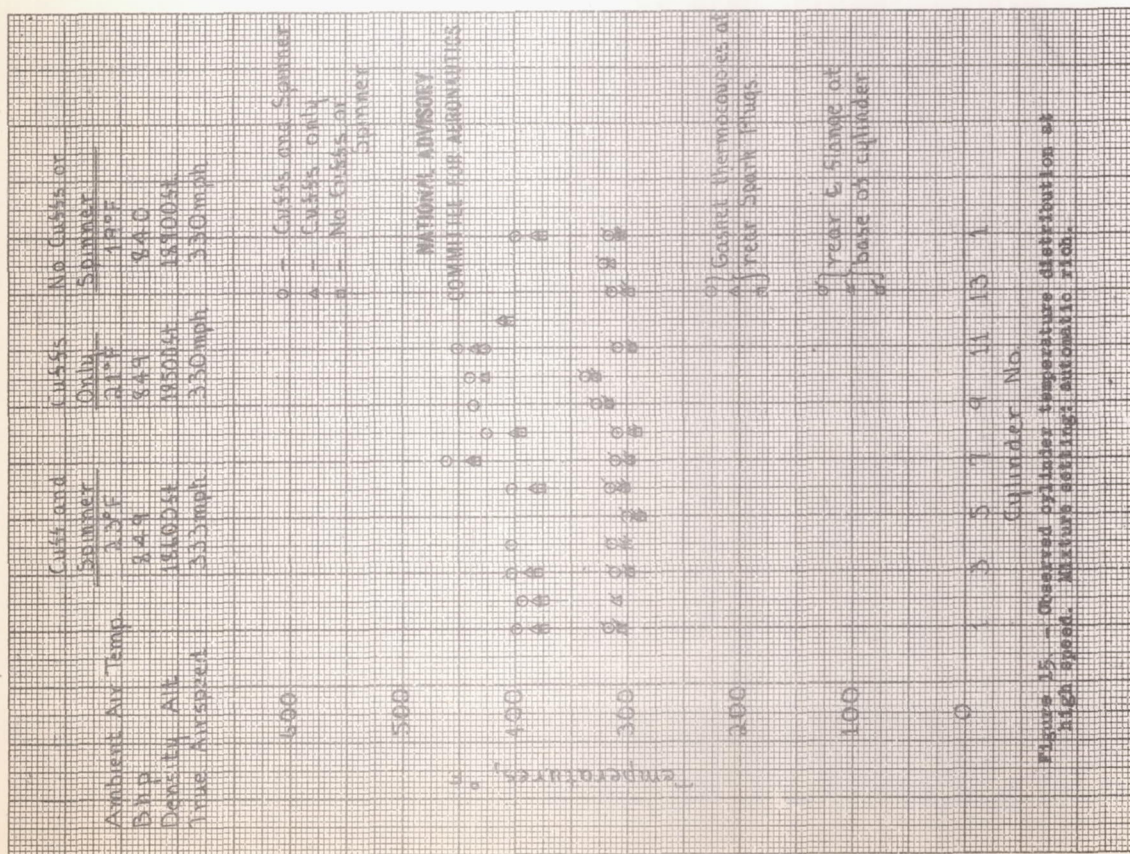 Cuff and Cuffs No Cuffs or
Spinner Only Spinner
Ambient Air Temp. 23°F 21°F 19°F
Bhp 849 849 840
Density Alt 18600ft 18500ft 18900ft
True Airspeed 333mph 330mph 330mph
600
500
400
300
200
100
0
Temperatures, °F
o - Cuffs and Spinner
Cuffs only
No Cuffs or
Spinner
NATIONAL ADVISORY
COMMITTEE FOR AERONAUTICS
Gasket thermocouples at
rear Spark Plugs
rear & flange at
base of cylinder
1 3 5 7 9 11 13 1
Cylinder No.
Figure 15. - Observed cylinder temperature distribution at
high speed. Mixture setting: automatic rich.